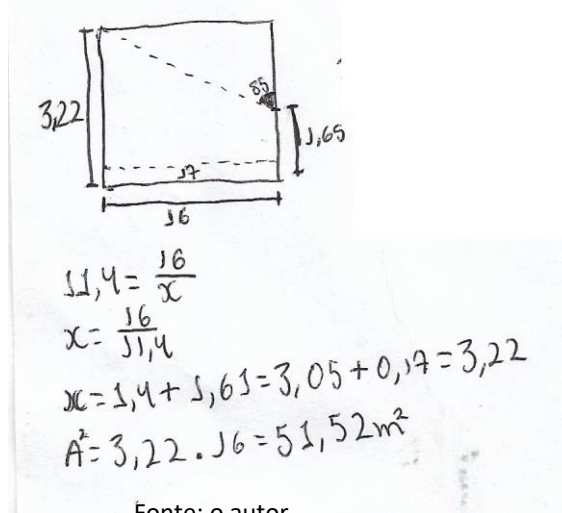 85
3,22
1,65
17
16
11,4 = 16/x
x = 16/11,4
x = 1,4 + 1,61 = 3,05 + 0,17 = 3,22
A² = 3,22 . 16 = 51,52 m²
Fonte: o autor